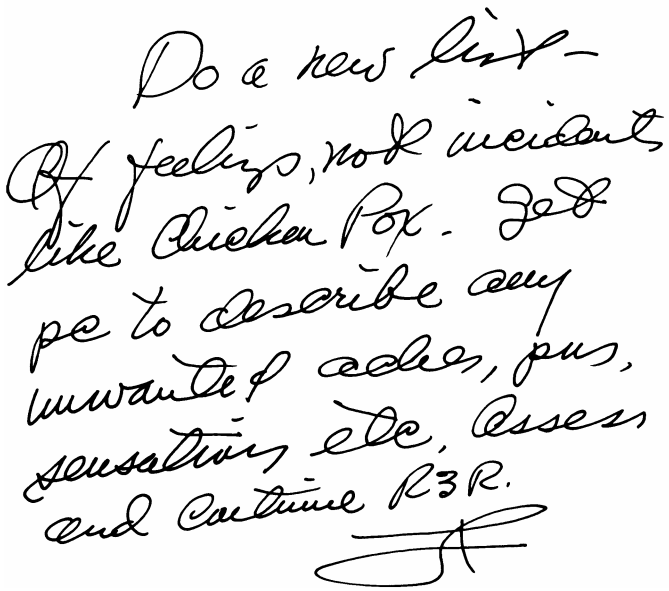 Do a new list -
Of feelings, not incidents
like Chicken Pox. Get
pc to describe any
unwanted aches, pns,
sensations etc. Assess
and continue R3R.